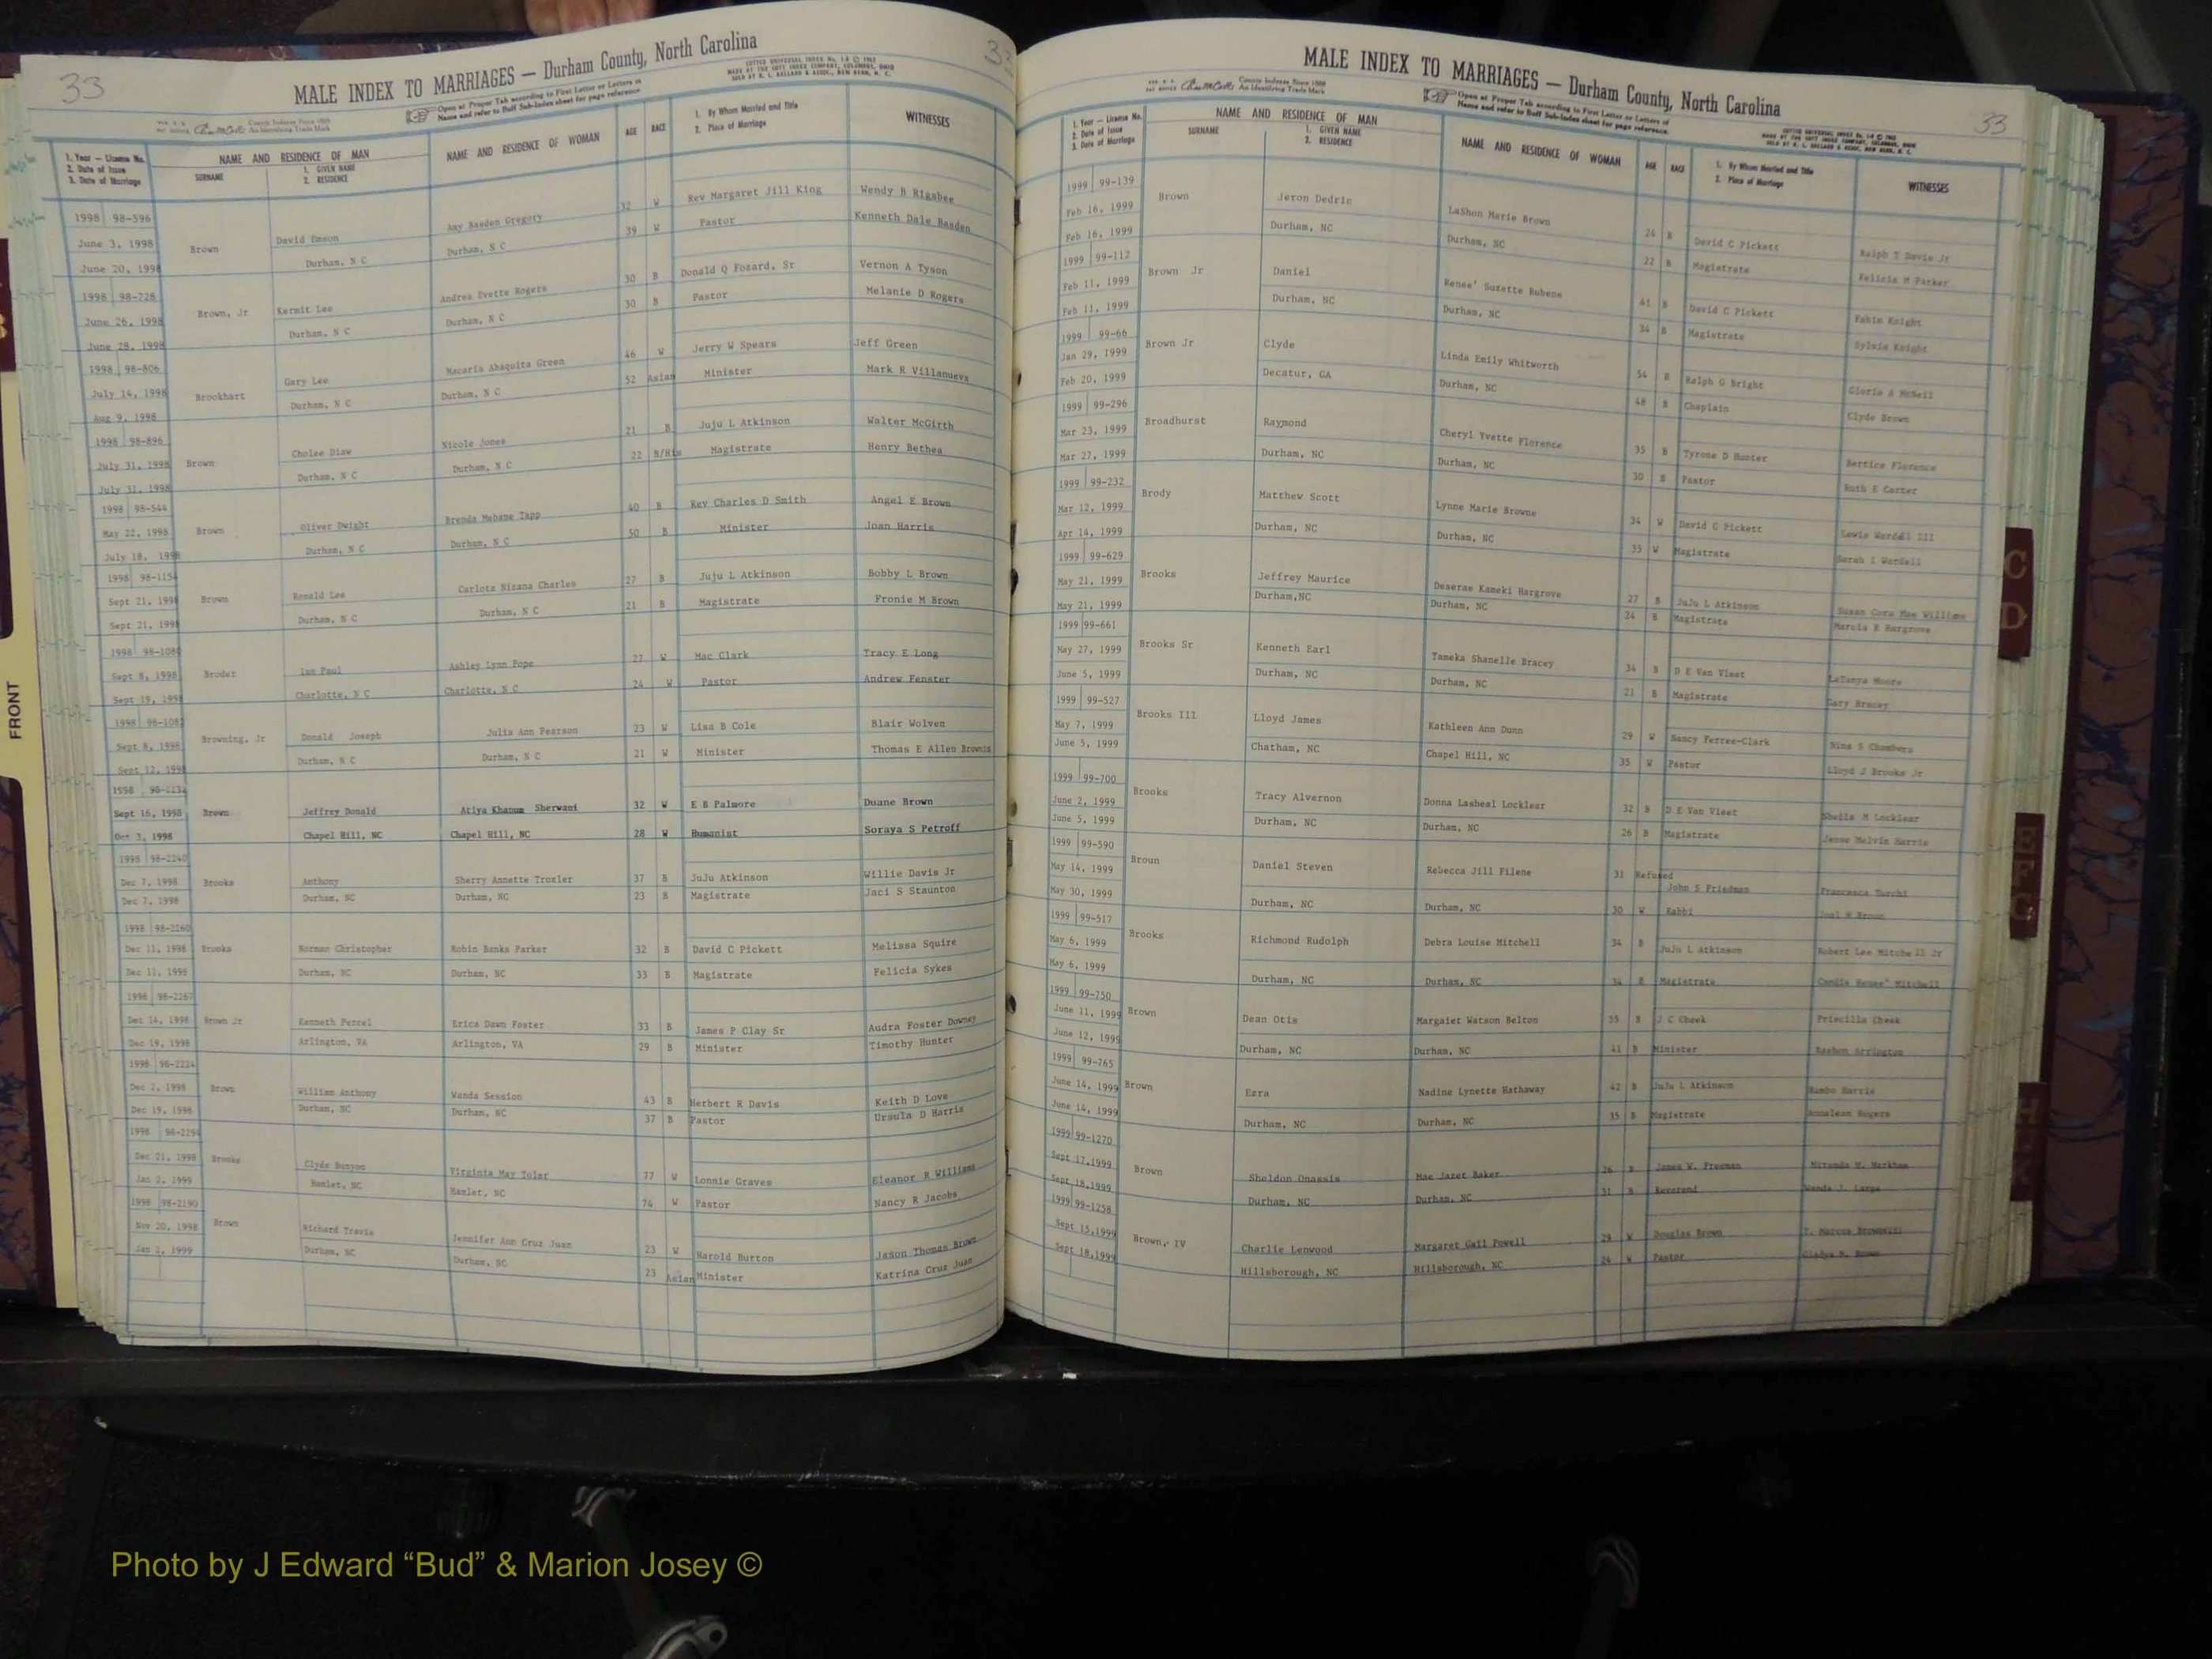 33
MALE INDEX TO MARRIAGES — Durham County, North Carolina
Open at Proper Tab according to First Letter or Letters of
Name and refer to Buff Sub-Index sheet for page reference.
1. Year — License No.
2. Date of Issue
3. Date of Marriage
NAME AND RESIDENCE OF MAN
SURNAME
1. GIVEN NAME
2. RESIDENCE
NAME AND RESIDENCE OF WOMAN
AGE
RACE
1. By Whom Married and Title
2. Place of Marriage
WITNESSES
1998 98-596 32 W Rev Margaret Jill King Wendy B Rigsbee
June 3, 1998 Brown David Emson Amy Basden Gregory 39 W Pastor Kenneth Dale Basden
June 20, 1998 Durham, N C Durham, N C
1998 98-728 30 B Donald Q Fozard, Sr Vernon A Tyson
June 26, 1998 Brown, Jr Kermit Lee Andrea Evette Rogers 30 B Pastor Melanie D Rogers
June 28, 1998 Durham, N C Durham, N C
1998 98-806 46 W Jerry W Spears Jeff Green
July 14, 1998 Brookhart Gary Lee Macaria Abaquita Green 52 Asian Minister Mark R Villanueva
Aug 9, 1998 Durham, N C Durham, N C
1998 98-896 21 B Juju L Atkinson Walter McGirth
July 31, 1998 Brown Cholee Diaw Nicole Jones 22 Magistrate Henry Bethea
July 31, 1998 Durham, N C Durham, N C
1998 98-544 40 B Rev Charles D Smith Angel E Brown
May 22, 1998 Brown Oliver Dwight Brenda Mebane Tapp 50 B Minister Joan Harris
July 18, 1998 Durham, N C Durham, N C
1998 98-1154 27 B Juju L Atkinson Bobby L Brown
Sept 21, 1998 Brown Ronald Lee Carlota Nizana Charles 21 B Magistrate Fronie M Brown
Sept 21, 1998 Durham, N C Durham, N C
1998 27 W Mac Clark Tracy E Long
Sept 8, 1998 Broder Ian Paul Ashley Lynn Pope 24 W Pastor Andrew Fenster
Sept 19, 1998 Charlotte, N C Charlotte, N C
1998 23 W Lisa B Cole Blair Wolven
Sept 8, 1998 Browning, Jr Donald Joseph Julia Ann Pearson 21 W Minister Thomas E Allen
Sept 12, 1998 Durham, N C Durham, N C
1998 98-1134
Sept 16, 1998 Brown Jeffrey Donald Atiya Khanum Sherwani 32 W E B Palmore Duane Brown
Oct 3, 1998 Chapel Hill, NC Chapel Hill, NC 28 W Humanist Soraya S Petroff
1998 98-2240
Dec 7, 1998 Brooks Anthony Sherry Annette Troxler 37 B JuJu Atkinson Willie Davis Jr
Dec 7, 1998 Durham, NC Durham, NC 23 B Magistrate Jaci S Staunton
1998 98-2260
Dec 11, 1998 Brooks Norman Christopher Robin Banks Parker 32 B David C Pickett Melissa Squire
Dec 11, 1998 Durham, NC Durham, NC 33 B Magistrate Felicia Sykes
1998 98-2267
Dec 14, 1998 Brown Jr Kenneth Percel Erica Dawn Foster 33 B James P Clay Sr Audra Foster Downey
Dec 19, 1998 Arlington, VA Arlington, VA 29 B Minister Timothy Hunter
1998 98-2224
Dec 2, 1998 Brown William Anthony Wanda Session 43 B Herbert R Davis Keith D Love
Dec 19, 1998 Durham, NC Durham, NC 37 B Pastor Ursula D Harris
1998
Dec 21, 1998 Brooks Clyde Bunyon Virginia May Toler 77 W Lonnie Graves Eleanor R Williams
Jan 2, 1999 Hamlet, NC Hamlet, NC 74 W Pastor Nancy R Jacobs
1998 98-2190
Nov 20, 1998 Brown Richard Travis Jennifer Ann Cruz Juan 23 W Harold Burton Jason Thomas Brown
Jan 2, 1999 Durham, NC Durham, NC 23 Asian Minister Katrina Cruz Juan
33
MALE INDEX TO MARRIAGES — Durham County, North Carolina
33
Open at Proper Tab according to First Letter or Letters of
Name and refer to Buff Sub-Index sheet for page reference.
1. Year — License No.
2. Date of Issue
3. Date of Marriage
NAME AND RESIDENCE OF MAN
SURNAME
1. GIVEN NAME
2. RESIDENCE
NAME AND RESIDENCE OF WOMAN
AGE
RACE
1. By Whom Married and Title
2. Place of Marriage
WITNESSES
1999 99-139
Feb 16, 1999 Brown Jeron Dedric LaShon Marie Brown 24 B David C Pickett Ralph T Davis Jr
Feb 16, 1999 Durham, NC Durham, NC 22 B Magistrate Felicia M Parker
1999 99-112
Feb 11, 1999 Brown Jr Daniel Renee' Suzette Rubens 41 B David C Pickett Knight
Feb 11, 1999 Durham, NC Durham, NC 34 B Magistrate Sylvia Knight
1999 99-66
Jan 29, 1999 Brown Jr Clyde Linda Emily Whitworth 54 B Ralph G Bright Gloria A McNeil
Feb 20, 1999 Decatur, GA Durham, NC 48 B Chaplain Clyde Brown
1999 99-296
Mar 23, 1999 Broadhurst Raymond Cheryl Yvette Florence 35 B Tyrone D Hunter Bertice Florence
Mar 27, 1999 Durham, NC Durham, NC 30 B Pastor Ruth E Carter
1999 99-232
Mar 12, 1999 Brody Matthew Scott Lynne Marie Browne 34 W David C Pickett Lewis Wardell III
Apr 14, 1999 Durham, NC Durham, NC 35 W Magistrate Sarah I Wardell
1999 99-629
May 21, 1999 Brooks Jeffrey Maurice Deserae Kameki Hargrove 27 B JuJu L Atkinson Susan Cora Mae Williams
May 21, 1999 Durham,NC Durham, NC 24 B Magistrate Marcia R Hargrove
1999 99-661
May 27, 1999 Brooks Sr Kenneth Earl Tameka Shanelle Bracey 34 B D E Van Vleet LaTanya Moore
June 5, 1999 Durham, NC Durham, NC 21 B Magistrate Gary Bracey
1999 99-527
May 7, 1999 Brooks III Lloyd James Kathleen Ann Dunn 29 W Nancy Ferree-Clark Nina S Chambers
June 5, 1999 Chatham, NC Chapel Hill, NC 35 W Pastor Lloyd J Brooks Jr
1999 99-700
June 2, 1999 Brooks Tracy Alvernon Donna Lasheal Locklear 32 B D E Van Vleet Sheila M Locklear
June 5, 1999 Durham, NC Durham, NC 26 B Magistrate Jesse Melvin Harris
1999 99-590
May 14, 1999 Broun Daniel Steven Rebecca Jill Filene 31 Refused John S Friedman Francesca Turchi
May 30, 1999 Durham, NC Durham, NC 30 W Rabbi Broun
1999 99-517
May 6, 1999 Brooks Richmond Rudolph Debra Louise Mitchell 34 B JuJu L Atkinson Robert Lee Mitchell Jr
May 6, 1999 Durham, NC Durham, NC 34 B Magistrate Mitchell
1999 99-750
June 11, 1999 Brown Dean Otis Margaret Watson Belton 55 B J C Cheek Priscilla Cheek
June 12, 1999 Durham, NC Durham, NC 41 B Minister Rashon Arrington
1999 99-765
June 14, 1999 Brown Ezra Nadine Lynette Hathaway 42 B JuJu L Atkinson Harris
June 14, 1999 Durham, NC Durham, NC 35 B Magistrate Annalean Rogers
1999 99-1270
Sept 17,1999 Brown Sheldon Onassis Mae Jazet Baker 26 B James W. Freeman Miranda M. Markham
Sept 18,1999 Durham, NC Durham, NC 31 B Reverend Wanda J.
1999 99-1258
Sept 15,1999 Brown, IV Charlie Lenwood Margaret Gail Powell 29 W Douglas Brown T. Marcus
Sept 18,1999 Hillsborough, NC Hillsborough, NC 24 W Pastor Gladys Brown
FRONT
C
D
Photo by J Edward “Bud” & Marion Josey ©